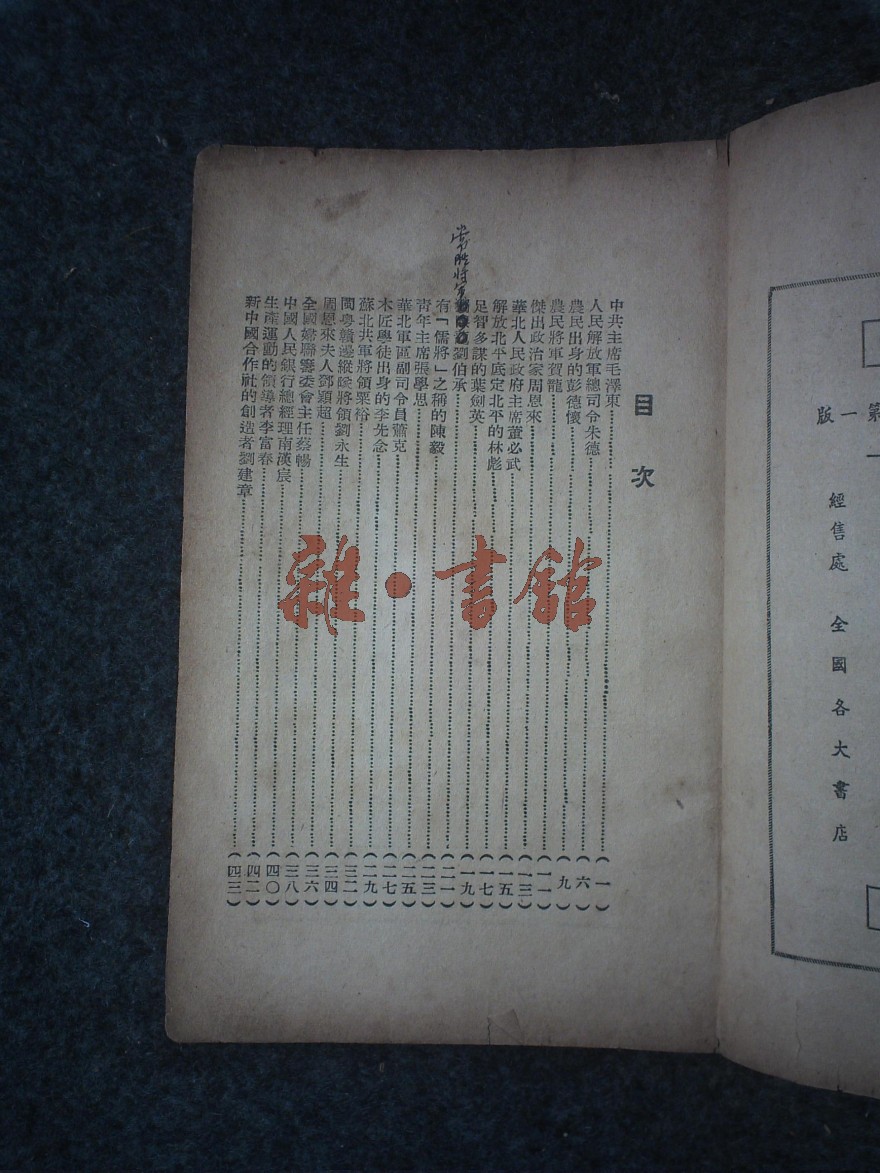 第一版
經售處 全國各大書店
目次
中共主席毛澤東……(一)
人民解放軍總司令朱德……(六)
農民出身的彭德懷……(九)
農民將軍賀龍……(一一)
傑出政治家周恩來……(一三)
華北人民政府主席董必武……(一五)
解放北平底定北平的林彪……(一七)
足智多謀的葉劍英……(一九)
常胜将军劉伯承……(二一)
有「儒將」之稱的陳毅……(二三)
青年主席張學思……(二五)
華北軍區副司令員蕭克……(二七)
木匠學徒出身的李先念……(二九)
蘇北共軍將領粟裕……(三二)
閩粵贛邊縱隊將領劉永生……(三四)
周恩來夫人鄧穎超……(三六)
全國婦聯籌委會主任蔡暢……(三八)
中國人民銀行總經理南漢宸……(四〇)
生產運動的領導者李富春……(四二)
新中國合作社的創造者劉建章……(四三)
雜·書館